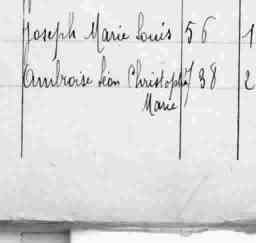 Joseph Marie Louis 56 1
Ambroise Léon Christophe 738 2
Marie